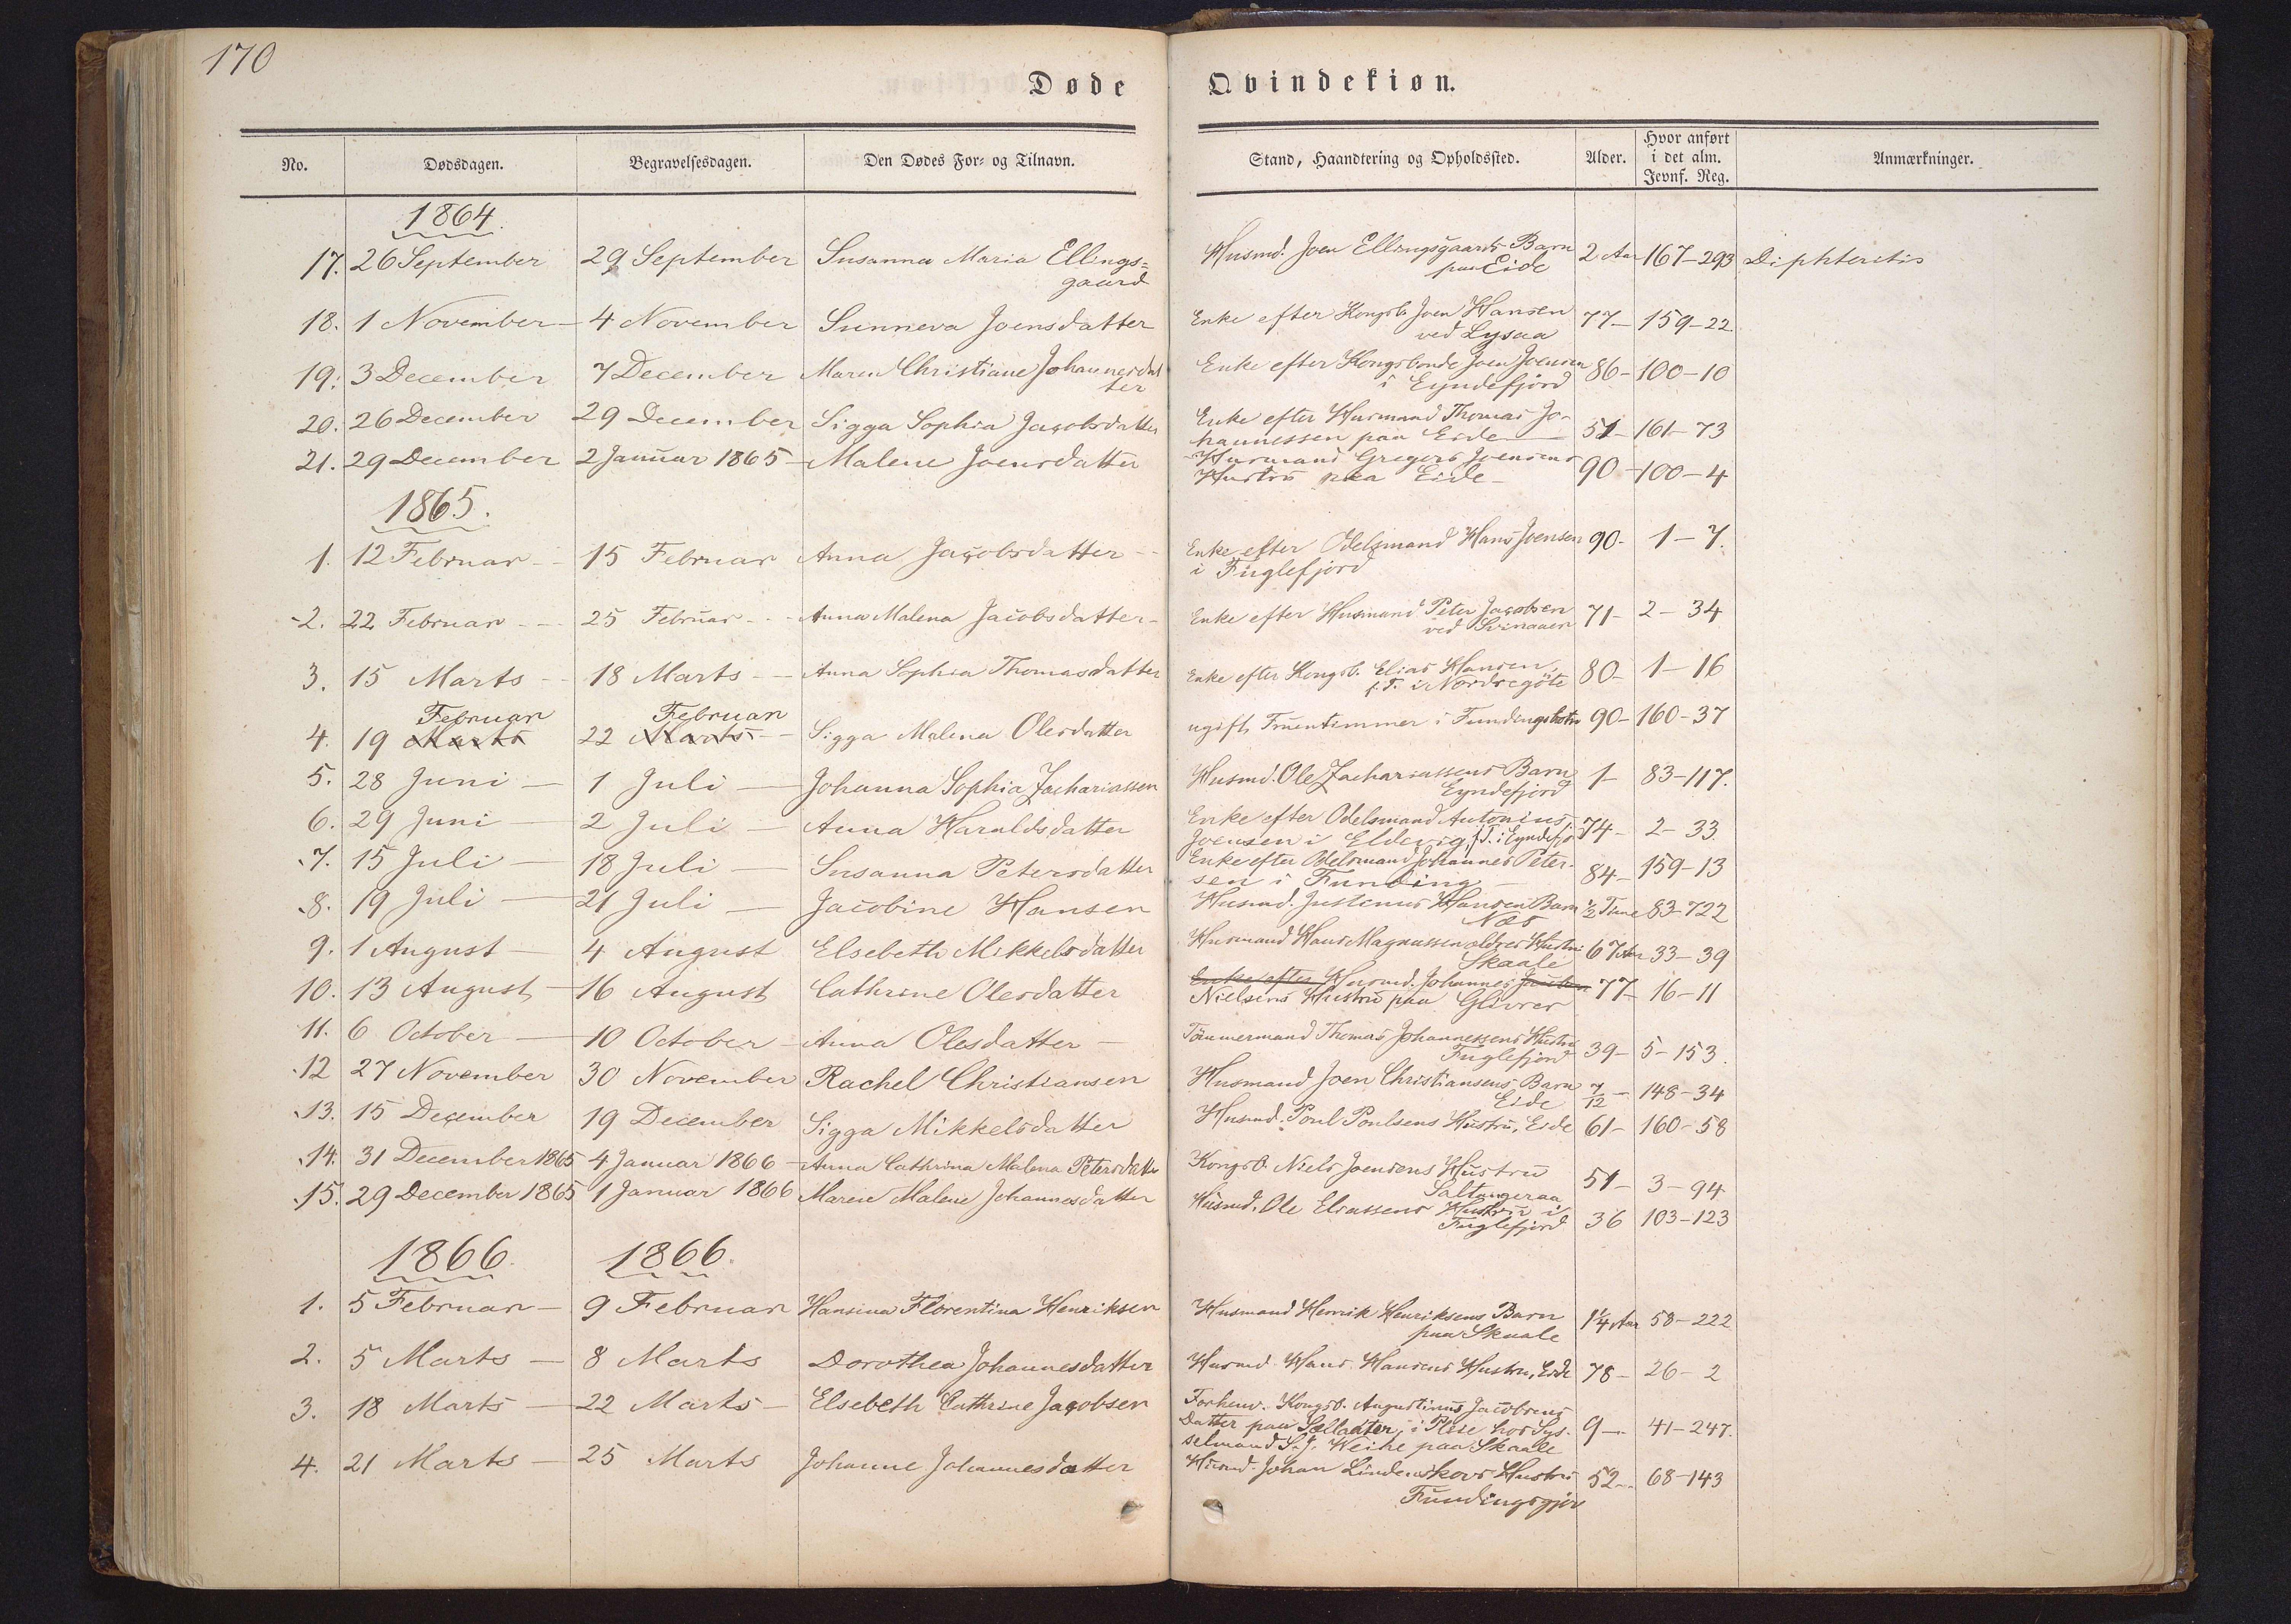 170
Døde Qvindekiøn.
No. Dødsdagen. Begravelsesdagen. Den Dødes For- og Tilnavn. Stand, Haandtering og Opholdssted. Alder. Hvor anført i det alm. Jevnf. Reg. Anmærkninger.
1864.
17. 26 September 29 September Susanna Maria Ellings= Husmd. Joen Ellingsgaards Barn 2 Aar 167-293 Diphteritis
gaard paa Eide
18. 1 November - 4 November Sunneva Joensdatter Enke efter Kongsb. Joen Hansen 77- 159-22
ved Lysaa
19. 3 December 7 December Maren Christiane Johannesdat Enke efter Kongsbonde Joen Joensen 86- 100-10
ter i Eyndefjord
20. 26 December 29 December Sigga Sophia Jacobsdatter Enke efter Husmand Thomas Jo- 51- 161-73
hannessen paa Eide
21. 29 December 2 Januar 1865 - Malene Joensdatter Husmand Gregers Joensens 90- 100-4
Hustru paa Eide -
1865.
1. 12 Februar - 15 Februar Anna Jacobsdatter - Enke efter Odelsmand Hans Joensen 90- 1-7.
i Fuglefjord
2. 22 Februar - 25 Februar - Anna Malena Jacobsdatter - Enke efter Husmand Peter Jacobsen 71- 2-34
ved Svinaaen
3. 15 Marts - 18 Marts - Anna Sophia Thomasdatter Enke efter Kongsb. Elias Hansen, 80- 1-16
f.T. i Nordregöte
Februar Februar
4. 19 Marts 22 Marts - Sigga Malena Olesdatter ugift Fruentimmer i Fundingsbotn 90- 160-37
5. 28 Juni - 1 Juli - Johanna Sophia Zachariassen Husmd. Ole Zachariassens Barn 1- 83-117.
Eyndefjord
6. 29 Juni - 2 Juli - Anna Haraldsdatter Enke efter Odelsmand Antonius 74- 2-33
Joensen i Eldevig, f.T. i Eyndefj.
7. 15 Juli - 18 Juli - Susanna Petersdatter Enke efter Odelsmand Johannes Peter- 84- 159-13
sen i Funding -
8. 19 Juli - 21 Juli - Jacobine Hansen Husmd. Justinus Hansens Barn ½ Time 83-722
Næs
9. 1 August - 4 August Elsebeth Mikkelsdatter Husmand Hans Magnussen ældres Hustru 67 Aar 33-39
Skaale
10. 13 August - 16 August Cathrine Olesdatter Enke efter Husmd. Johannes 77- 16-11
Nielsens Hustru paa Glivrer
11. 6 October - 10 October - Anna Olesdatter - Tömmermand Thomas Johannessens Hustru 39- 5-153.
Fuglefjord
12 27 November 30 November Rachel Christiansen Husmand Joen Christiansens Barn 7/12 - 148-34
Eide
13. 15 December 19 December Sigga Mikkelsdatter Husmd. Poul Poulsens Hustru, Eide 61- 160-58
14. 31 December 1865 4 Januar 1866 - Anna Cathrina Malena Petersdatter Kongsb. Niels Joensens Hustru 51- 3-94
Saltangeraa
15. 29 December 1865 1 Januar 1866 Maren Malene Johannesdatter Husmd. Ole Eliassens Hustru i 36 103-123
Fuglefjord
1866. 1866.
1. 5 Februar - 9 Februar Hansina Florentina Henriksen Husmand Henrik Henriksens Barn 1¼ Aar 58-222
paa Skaale
2. 5 Marts - 8 Marts Dorothea Johannesdatter Husmd. Hans Hansens Hustru, Eide 78- 26-2
3. 18 Marts - 22 Marts - Elsebeth Cathrine Jacobsen Forhenv. Kongsb. Augustinus Jacobsens
Datter paa Sellatter, i Pleie hos Sys- 9- 41-247.
selmand S.J. Weihe paa Skaale
4. 21 Marts - 25 Marts Johanne Johannesdatter Husmd. Johan Lindenskovs Hustru 52- 68-143
Fundingsgjov